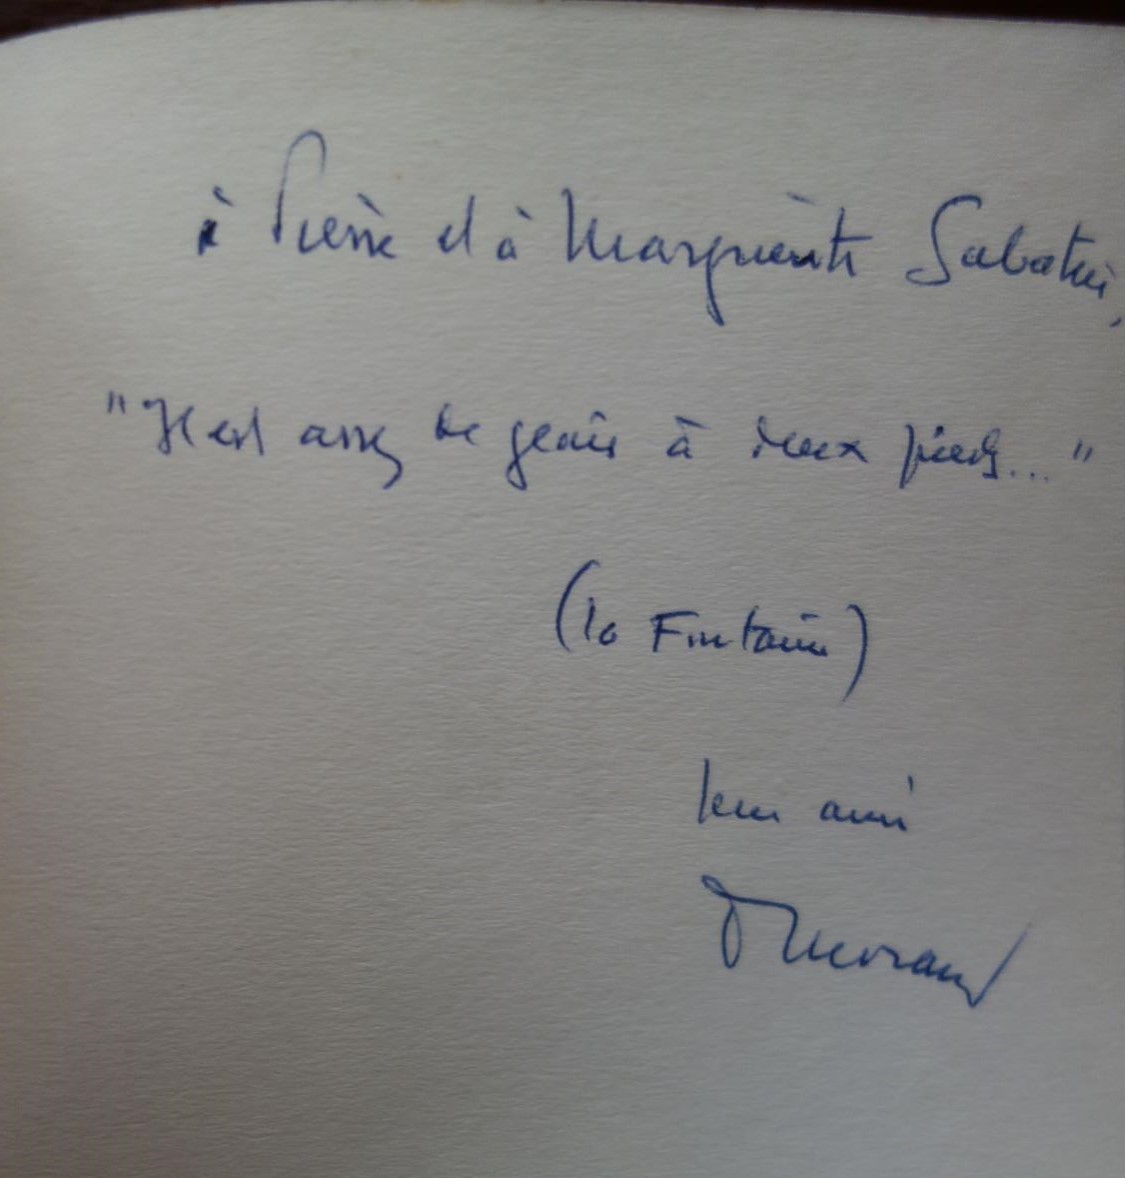 à Pierre et à Marguerite Sabatier,
"Il est assez de geais à deux pieds..."
(La Fontaine)
leur ami
P Morand